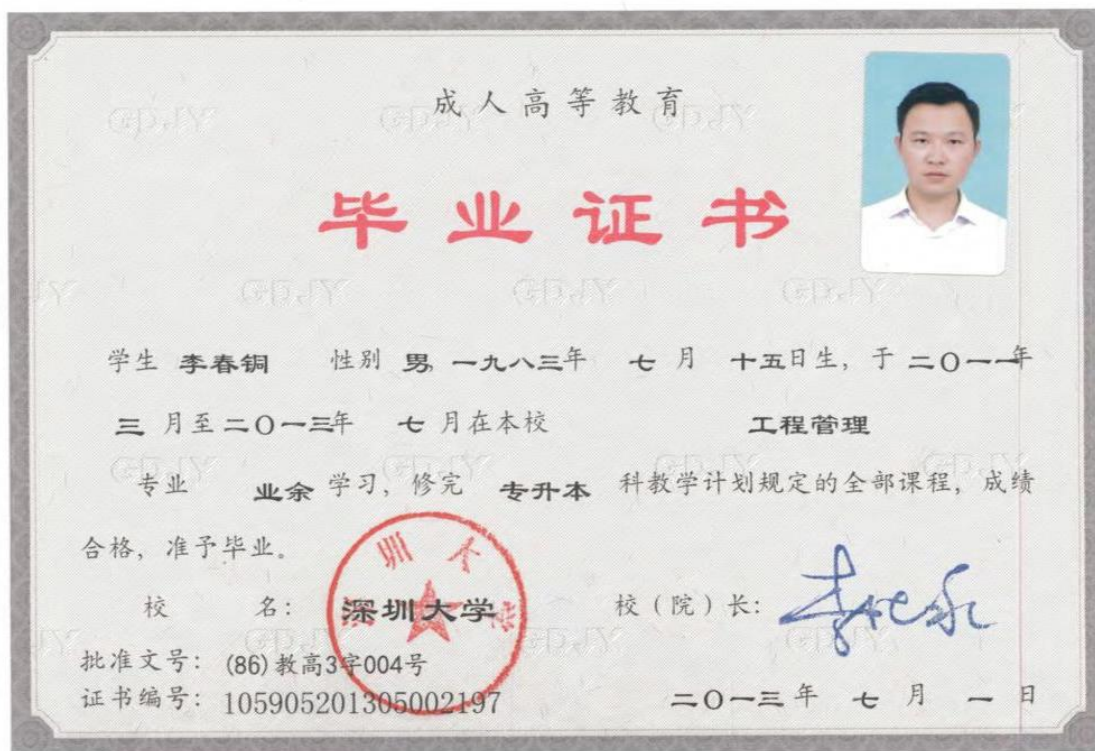 成人高等教育
毕业证书
学生 李春铜 性别 男, 一九八三年 七 月 十五日生, 于 二〇一一年
三 月至二〇一三年 七 月在本校 工程管理
专业 业余 学习, 修完 专升本 科教学计划规定的全部课程, 成绩
合格, 准予毕业。
校 名: 深圳大学 校(院)长:
批准文号: (86)教高3字004号
证书编号: 105905201305002197 二〇一三 年 七 月 一 日
深圳大学
GDJY